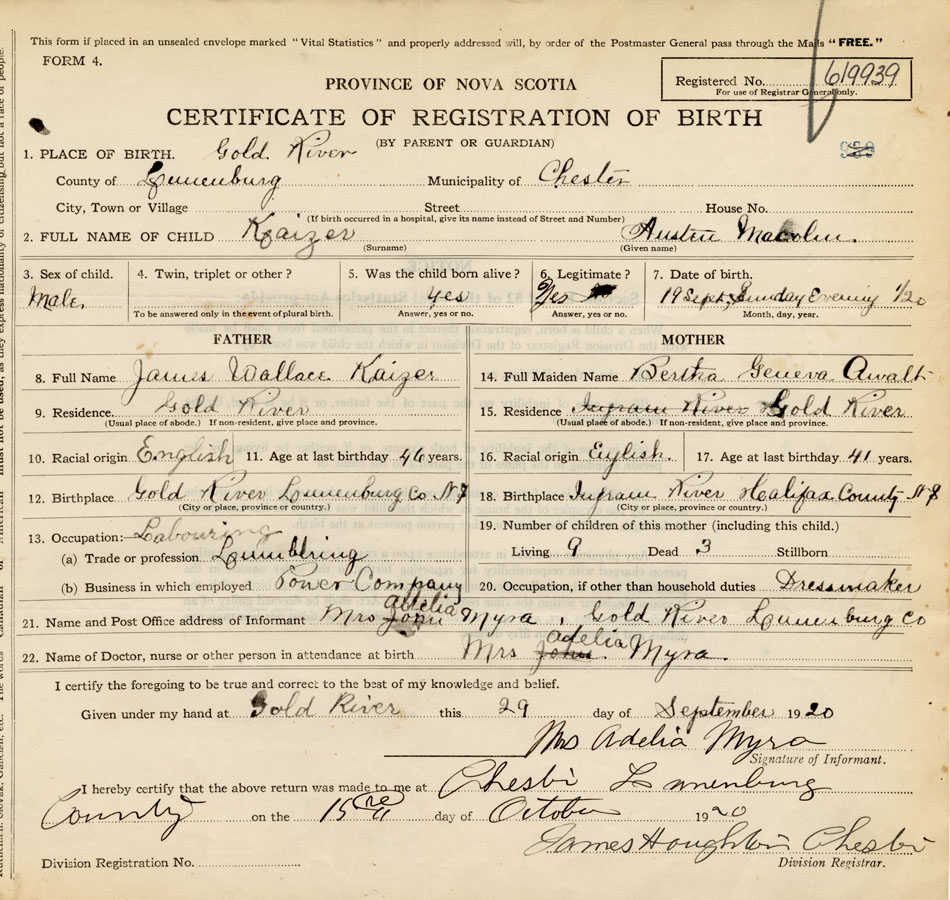 This form if placed in an unsealed envelope marked "Vital Statistics" and properly addressed will, by order of the Postmaster General pass through the Mails "FREE."
FORM 4.
PROVINCE OF NOVA SCOTIA
Registered No. 619939
For use of Registrar General only.
CERTIFICATE OF REGISTRATION OF BIRTH
(BY PARENT OR GUARDIAN)
1. PLACE OF BIRTH. Gold River
County of Lunenburg Municipality of Chester
City, Town or Village Street House No.
(If birth occurred in a hospital, give its name instead of Street and Number)
2. FULL NAME OF CHILD Kaizer Austin Malcolm.
(Surname) (Given name)
3. Sex of child. 4. Twin, triplet or other? 5. Was the child born alive? 6. Legitimate? 7. Date of birth.
Male. yes Yes 19 Sept, Sunday Evening 1/20
To be answered only in the event of plural birth. Answer, yes or no. Answer, yes or no. Month, day, year.
FATHER MOTHER
8. Full Name James Wallace Kaizer 14. Full Maiden Name Bertha Geneva Awalt
9. Residence. Gold River 15. Residence Ingram River Gold River
(Usual place of abode.) If non-resident, give place and province. (Usual place of abode.) If non-resident, give place and province.
10. Racial origin English 11. Age at last birthday 46 years. 16. Racial origin Eylish. 17. Age at last birthday 41 years.
12. Birthplace Gold River Lunenburg Co N S 18. Birthplace Ingram River Halifax County N S
(City or place, province or country.) (City or place, province or country.)
13. Occupation:— Labouring 19. Number of children of this mother (including this child.)
(a) Trade or profession Lumbering Living 9 Dead 3 Stillborn
(b) Business in which employed Power Company 20. Occupation, if other than household duties Dressmaker
21. Name and Post Office address of Informant Mrs John adelia Myra, Gold River Lunenburg Co
22. Name of Doctor, nurse or other person in attendance at birth Mrs John adelia Myra.
I certify the foregoing to be true and correct to the best of my knowledge and belief.
Given under my hand at Gold River this 29 day of September 1920
Mrs Adelia Myra
Signature of Informant.
I hereby certify that the above return was made to me at Chester Lunenburg
County on the 15 day of October 1920
James Houghton Chester
Division Registration No. Division Registrar.